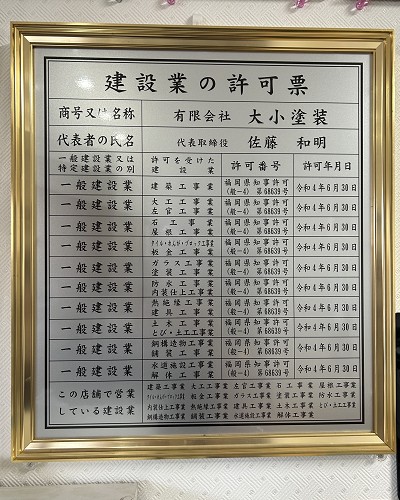 建設業の許可票
商号又は名称 有限会社 大小塗装
代表者の氏名 代表取締役 佐藤 和明
一般建設業又は特定建設業の別 許可を受けた建設業 許可番号 許可年月日
一般建設業 建築工事業 福岡県知事許可(般-4)第68639号 令和4年6月30日
一般建設業 大工工事業 左官工事業 福岡県知事許可(般-4)第68639号 令和4年6月30日
一般建設業 石工事業 屋根工事業 福岡県知事許可(般-4)第68639号 令和4年6月30日
一般建設業 タイル・れんが・ブロック工事業 板金工事業 福岡県知事許可(般-4)第68639号 令和4年6月30日
一般建設業 ガラス工事業 塗装工事業 福岡県知事許可(般-4)第68639号 令和4年6月30日
一般建設業 防水工事業 内装仕上工事業 福岡県知事許可(般-4)第68639号 令和4年6月30日
一般建設業 熱絶縁工事業 建具工事業 福岡県知事許可(般-4)第68639号 令和4年6月30日
一般建設業 土木工事業 とび・土工工事業 福岡県知事許可(般-4)第68639号 令和4年6月30日
一般建設業 鋼構造物工事業 舗装工事業 福岡県知事許可(般-4)第68639号 令和4年6月30日
一般建設業 水道施設工事業 解体工事業 福岡県知事許可(般-4)第68639号 令和4年6月30日
この店舗で営業している建設業
建築工事業 大工工事業 左官工事業 石工事業 屋根工事業
タイル・れんが・ブロック工事業 板金工事業 ガラス工事業 塗装工事業 防水工事業
内装仕上工事業 熱絶縁工事業 建具工事業 土木工事業 とび・土工工事業
鋼構造物工事業 舗装工事業 水道施設工事業 解体工事業